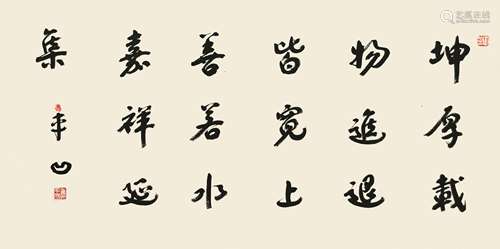 坤厚載
物進退
皆寬上
善若水
嘉祥延
集